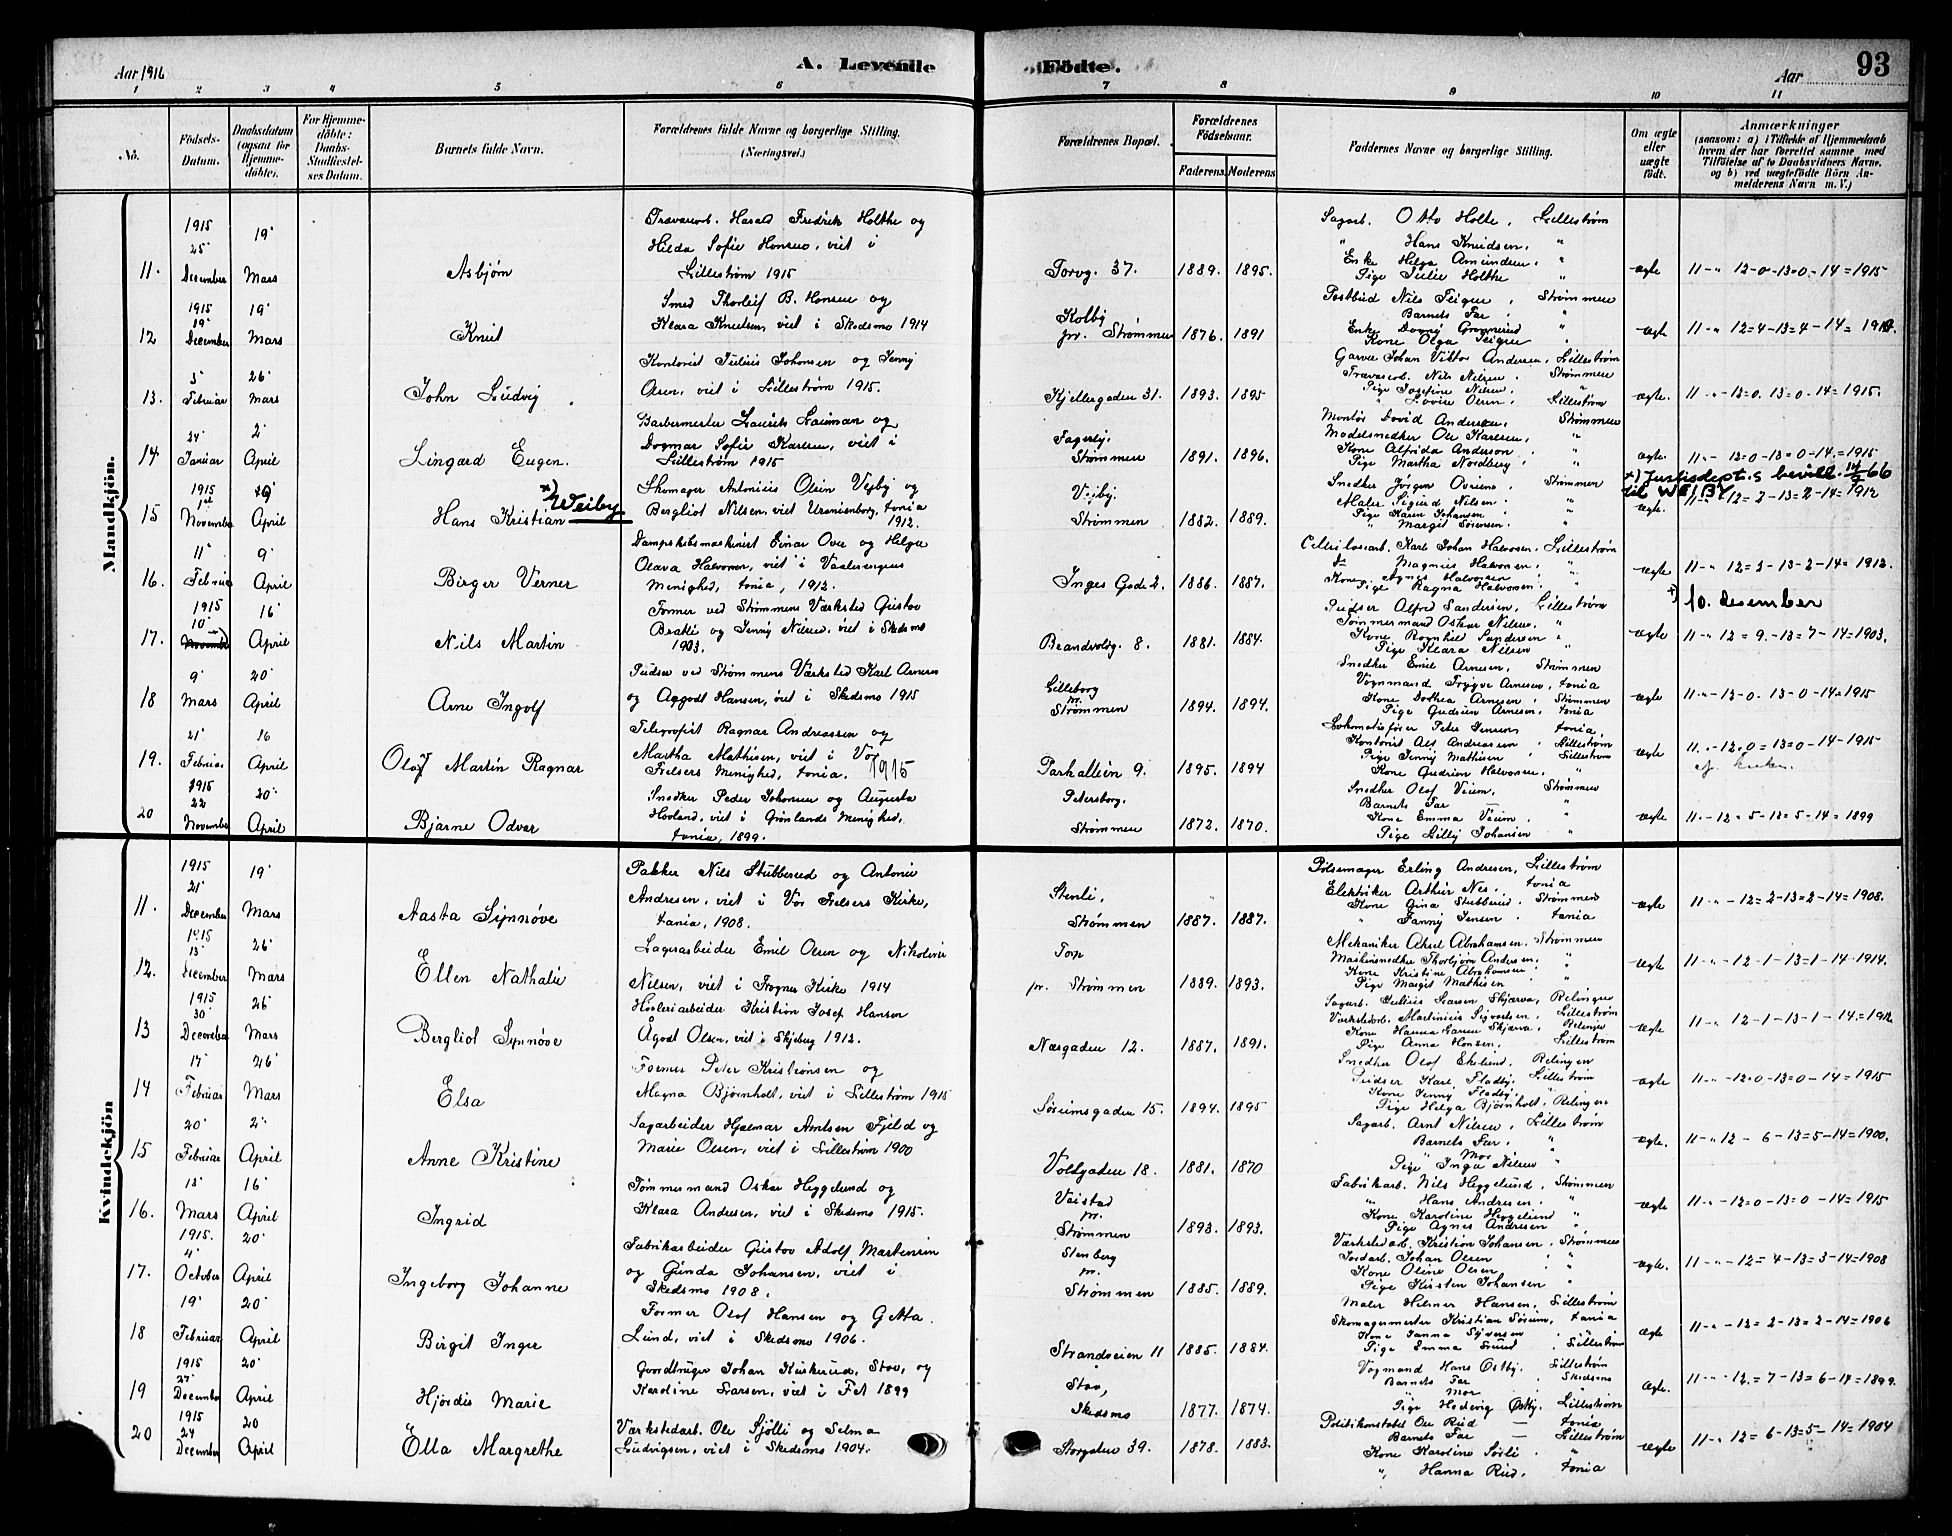 Aar 1916
A. Levende Födte.
Aar 93
1 2 3 4 5 6 7 8 9 10 11
No.
Födsels-Datum.
Daabsdatum (ogsaa for Hjemme-döbte).
For Hjemme-döbte: Daabs-Stadfæstel-ses Datum.
Barnets fulde Navn.
Forældrenes fulde Navne og borgerlige Stilling.
(Næringsvei.)
Forældrenes Bopæl.
Forældrenes Födselsaar.
Faderens. Moderens.
Faddernes Navne og borgerlige Stilling.
Om ægte eller uægte födt.
Anmærkninger
(saasom: a) i Tilfælde af Hjemmedaab hvem der har forrettet samme med Tilföielse af to Daabsvidners Navne, og b) ved uægtefödte Börn An-melderens Navn m. V.)
Mandkjön.
11. 1915 25 December 19 Mars Asbjørn
Hilda Sofie Hansen, viet i
Lillestrøm 1915
Torvg. 37. 1889. 1895.
Sagarb. Otto Holte, Lillestrøm
" Hans Knudsen, "
Enke Helga Amundsen, "
Pige Julie Holthe "
ægte 11-" 12-0-13=0-14=1915
12 1915 19 December 19 Mars Knut
Smed Thorleif B. Hansen og
Klara Knutsen, viet i Skedsmo 1914
Kolby pr. Strømmen 1876. 1891
Postbud Nils Teigen, Strømmen
Barnets Far "
Kone Olga Teigen
ægte
13. 5 Februar 26 Mars John Ludvig
Kontorist Julius Johansen og Jenny
Olsen, viet i Lillestrøm 1915.
Kjellergaden 31. 1893. 1895
Garver Johan Viktor Andersen, Lillestrøm
Nils Nilsen, Strømmen
Pige Josefine Nilsen, "
ægte. 11-"-13=0-14=1915.
14 24 Januar 2 April Lingard Eugen.
Barbermester Laurits Lauman og
Dagmar Sofie Karlsen, viet i
Lillestrøm 1915
Fagerly. Strømmen 1891. 1896.
Montør David Andersen, Strømmen
Modelsnedker Ole Karlsen, "
Kone Alfrida Anderson "
Pige Martha Nordberg, "
ægte. 11-"-12=0-13=0-14=1915
15 1915 1st November 9 April Hans Kristian x) Weiby
Skomager Antonius Olsen Vejby og
Bergliot Nilsen, viet Uranienborg, tonia 1912.
Vejby. Strømmen 1882. 1889.
Snedker Jørgen Strømmen
Maler Sigurd Nilsen "
Pige Karen Johansen "
" Margit Sørensen "
ægte.
x) Justisdept.s bevill. 14/2 66
til WEIBY
11-"-12=2-13=2-14=1912
16. 11 Februar 9 April Birger Verner
Dampskibsmaskinist Einar Over og Helga
Olava Halvorsen, viet i Vaalerengens
Menighed, tonia, 1912.
Inges Gade 2. 1886. 1887.
Karl Johan Halvorsen, Lillestrøm
Magnus Halvorsen, "
Kone Agnes Halvorsen "
Pige Ragna Halvorsen, "
ægte 11-"-12=3-13-2-14=1912.
17. 1915 10 November x) 16 April Nils Martin
Former ved Strømmens Værksted Gustav
Brække og Jenny Nilsen, viet i Skedsmo
1903.
Brandvoldg. 8. 1881. 1884.
Pudser Alfred Sandersen, Lillestrøm
Tømmermand Oskar Nilsen, "
Kone Ragnhild Sandersen "
Pige Klara Nilsen "
ægte x) 10. desember
11-"-12=9.-13=7-14=1903.
18 9 Mars 20 April Arne Ingolf
Pudser ved Strømmens Værksted Karl Arnesen
og Aagodt Hansen, viet i Skedsmo 1915
Lilleborg pr. Strømmen 1894. 1894.
Snedker Emil Arnesen, Strømmen
Vognmand Trygve Arnesen, tonia
Kone Dorthea Arnesen, Strømmen
Pige Gudrun Arnesen, tonia
ægte 11-"-13-0. 13-0-14=1915
19. 21 Februar 16 April Olaf Martin Ragnar
Telegrafist Ragnar Andreassen og
Martha Mathisen, viet i Vor
Frelsers Menighed, tonia. 1915
Parkalleen 9. 1895. 1894
Lokomotivfører Peter Jensen, tonia,
Kontorist Alf Andreassen, Lillestrøm
Pige Jenny Mathisen, Lillestrøm
Kone Gudrun Halvorsen, "
ægte 11.-"-12.0=13=0-14-1915
20 1915 22 November 20 April Bjarne Odvar
Snedker Peder Johansen og Augusta
Hovland, viet i Grønlands Menighed,
tonia, 1899.
Petersborg. Strømmen 1872. 1870.
Snedker Olof Veium, Strømmen
Barnets Far — "
Kone Emma Veium, "
Pige Lilly Johansen "
ægte 11.-12=5-13=5-14=1899
Kvindekjön
11. 1915 21 December 19 Mars Aasta Synnøve
Pakker Nils Stubberud og Antonie
Andresen, viet i Vor Frelsers Kirke,
tonia, 1908.
Stenli, Strømmen 1887. 1887.
Pølsemager Erling Andresen, Lillestrøm
Elektriker Arthur Nes, tonia
Kone Gina Stubberud, Strømmen
" Fanny Jensen, tonia
ægte 11-"-12=2-13=2-14=1908.
12. 1915 13 December 26 Mars Ellen Nathalie
Lagerarbeider Emil Olsen og Nikoline
Nilsen, viet i Frogner Kirke 1914
Torp pr. Strømmen 1889. 1893.
Mekaniker Aksel Abrahamsen, Strømmen
Maskinsnedker Thorbjørn Andersen, "
Kone Kristine Abrahamsen "
Pige Margit Mathisen "
ægte 11-"-12-1-13=1-14=1914.
13 1915 30 December 26 Mars Bergliot Synnøve
Høvleriarbeider Kristian Josef Hansen
Ågodt Olsen, viet i Skjeberg 1912.
Næsgaden 12. 1887. 1891.
Sagarb. Julius Larsen Skjærva, Relingen
Værkstedarb. Martinius Sigvartsen, Lillestrøm
Kone Hanna Larsen Skjærva, Relingen
Pige Anna Hansen, Lillestrøm
ægte 11-"-12-1-13-1-14=1912
14 17 Februar 26 Mars Elsa
Former Peter Kristiansen og
Magna Bjørnholt, viet i Lillestrøm 1915
Sørumsgaden 15. 1894. 1895
Snedker Olof Ekelund, Relingen
Pudser Karl Fladby, Lillestrøm
Kone Jenny Fladby, "
Pige Helga Bjørnholt, Relingen
ægte 11-"-12=0-13=0-14=1915
15 20 Februar 2 April Anne Kristine
Sagarbeider Hjalmar Antsen Fjeld og
Marie Olsen, viet i Lillestrøm 1900
Voldgaden 18. 1881. 1870
Sagarb. Arnt Nilsen, Lillestrøm
Barnets Far, "
" Mor "
Pige Inga Nilsen "
ægte. 11-"-12-6-13=5-14=1900.
16. 13 Mars 16 April Ingrid
Tømmermand Oskar Heggelund og
Klara Andersen, viet i Skedsmo 1915.
Vaistad pr. Strømmen 1893. 1893.
Fabrikarb. Nils Heggelund, Strømmen
" Hans Andresen, "
Kone Karoline Heggelund "
Pige Agnes Andresen "
ægte 11-"-12=0-13=0-14=1915
17. 1915. 4 October 20 April Ingeborg Johanne
Fabrikarbeider Gustav Adolf Martinsen
og Gunda Johansen, viet i
Skedsmo 1908.
Stenberg pr. Strømmen 1885. 1889.
Værkstedarb. Kristian Johansen, Strømmen
Jordarb. Johan Olsen "
Kone Oline Olsen "
Pige Kirsten Johansen "
ægte. 11-"-12=4-13=3-14=1908
18 19 Februar 20 April Birgit Inger
Former Olof Hansen og Getta
Lund, viet i Skedsmo 1906.
Strandveien 11 1885. 1884.
Maler Hilmer Hansen, Lillestrøm
Skomagermester Kristian Sørum, tonia
Kone Janna Syversen "
Pige Emma Lund, Lillestrøm
ægte 11-"-12=2-13=2-14=1906
19 1915 27 December 20 April Hjørdis Marie
Gaardbruger Johan Kirkerud, Stav, og
Karoline Larsen, viet i Fet 1899
Stav, Skedsmo 1877. 1874.
Vogmand Hans Østby, Lillestrøm
Barnets Far Skedsmo
" Mor "
Pige Hedevig Østby, Lillestrøm
ægte. 11-"-12.=7-13=6-14=1899.
20 1915 24 December 20 April Ella Margrethe
Værkstedarb. Ole Sjølli og Selma
Ludvigsen, viet i Skedsmo 1904.
Storgaden 39. 1878. 1883.
Politikonstabel Ole Rud — tonia
Barnets Far — Lillestrøm
Kone Karoline Sørli, "
" Hanna Rud, tonia
ægte 11-"-12=6-13=5-14=1904